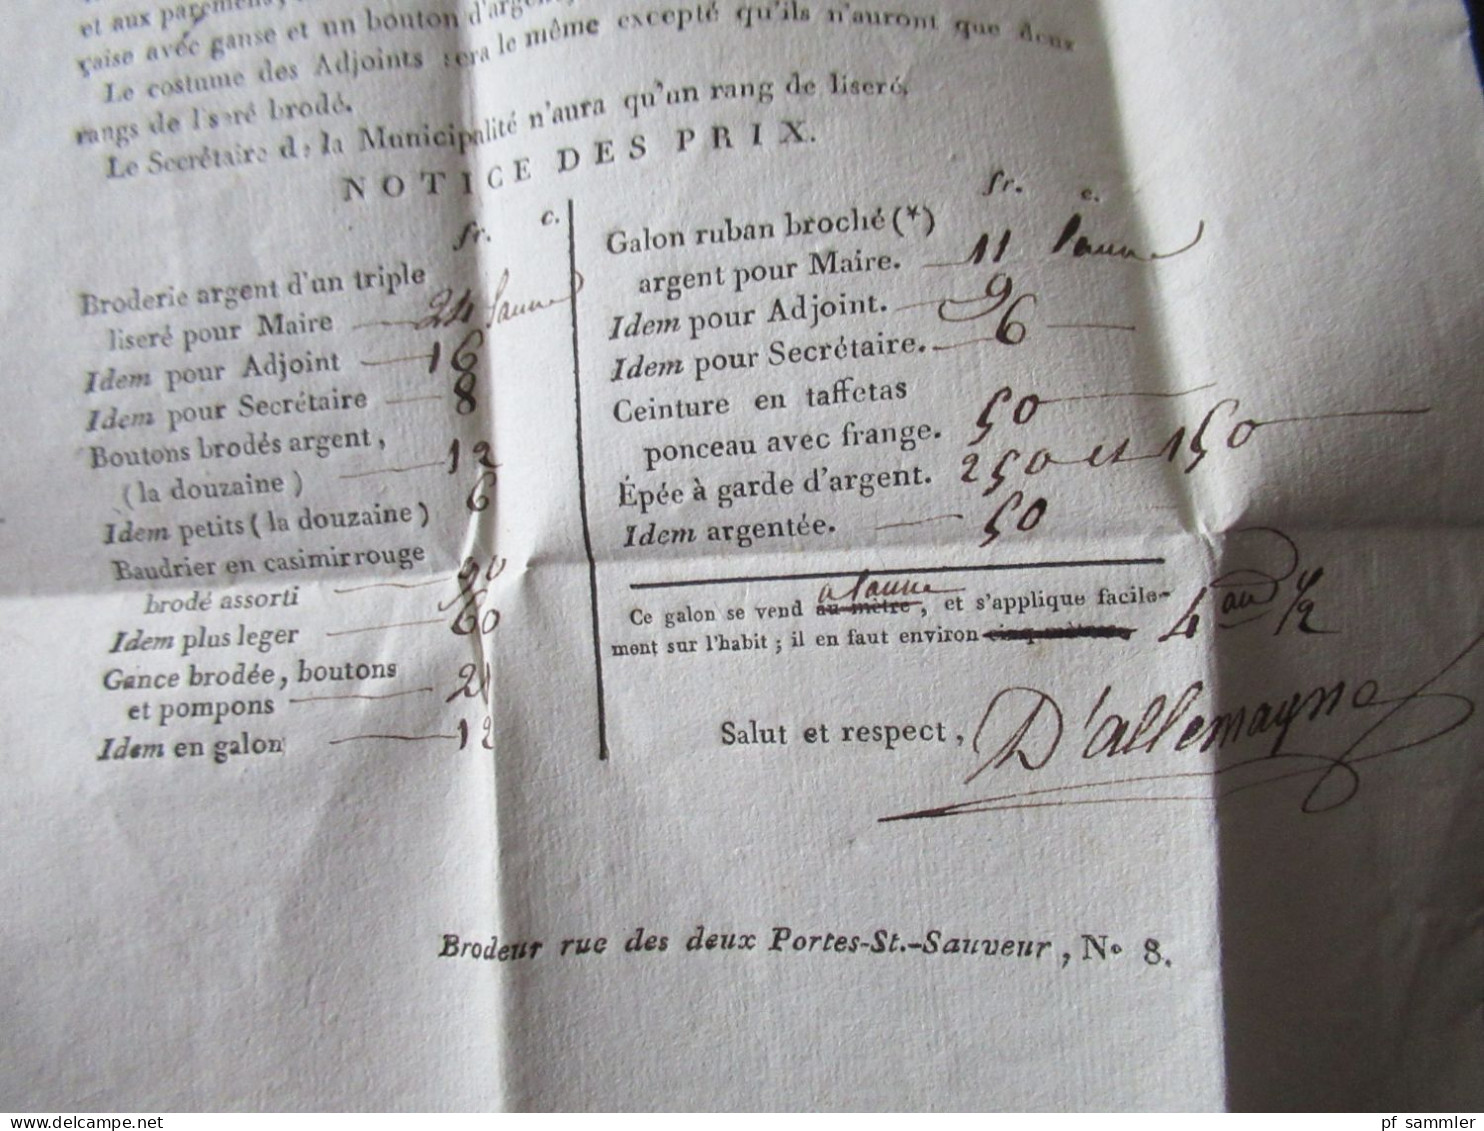 et aux paremens,
çaise avec ganse et un bouton d'argent
Le costume des Adjoints sera le même excepté qu'ils n'auront que deux
rangs de l'seré brodé.
Le Secrétaire de la Municipalité n'aura qu'un rang de liseré.
NOTICE DES PRIX.
fr. c.
Broderie argent d'un triple
liseré pour Maire 24 l'aune
Idem pour Adjoint 16
Idem pour Secrétaire 8
Boutons brodés argent,
(la douzaine) 12
Idem petits (la douzaine) 6
Baudrier en casimir rouge
brodé assorti 90
Idem plus leger 60
Gance brodée, boutons
et pompons 21
Idem en galon 12
fr. c.
Galon ruban broché (*)
argent pour Maire. 11 l'aune
Idem pour Adjoint. 9
Idem pour Secrétaire. 6
Ceinture en taffetas
ponceau avec frange. 50
Épée à garde d'argent. 250 et 150
Idem argentée. 50
a l'aune
Ce galon se vend au mètre, et s'applique facile-
ment sur l'habit ; il en faut environ cinq mètres 4 au 1/2
Salut et respect, D'allemagne
Brodeur rue des deux Portes-St.-Sauveur, No 8.
pf sammler